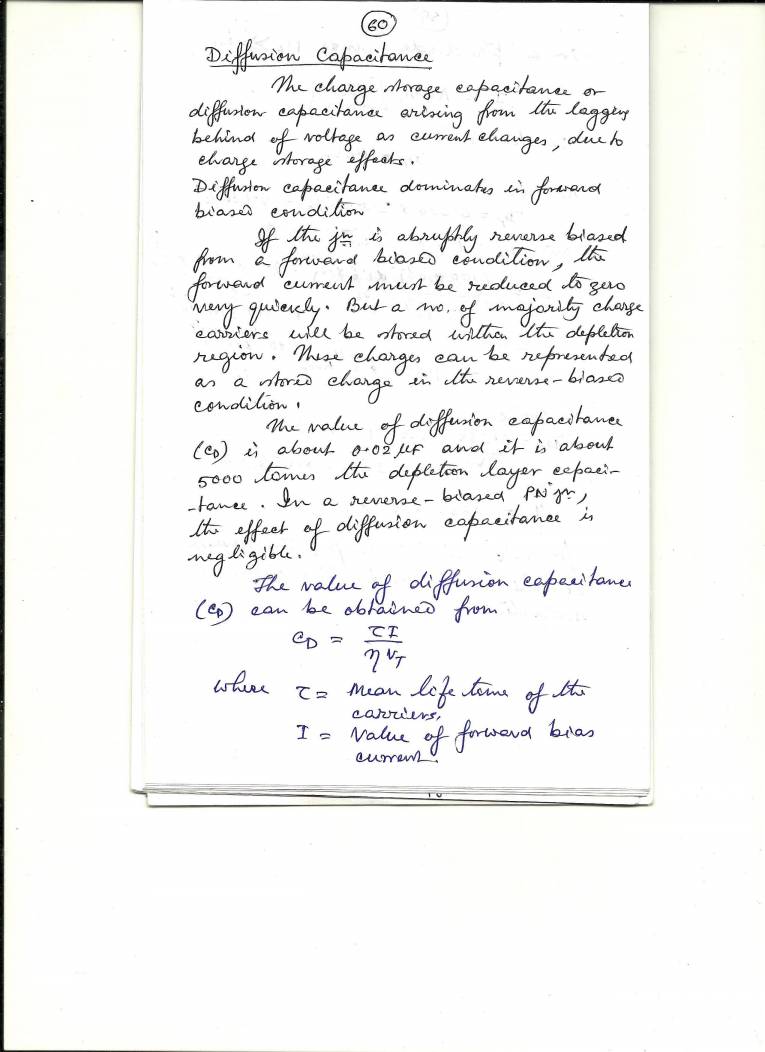 60
Diffusion Capacitance
The charge storage capacitance or
diffusion capacitance arising from the lagging
behind of voltage as current changes, due to
charge storage effects.
Diffusion capacitance dominates in forward
biased condition
If the jn is abruptly reverse biased
from a forward biased condition, the
forward current must be reduced to zero
very quickly. But a no. of majority charge
carriers will be stored within the depletion
region. These charges can be represented
as a stored charge in the reverse-biased
condition.
The value of diffusion capacitance
(CD) is about 0.02 μF and it is about
5000 times the depletion layer capaci-
-tance. In a reverse-biased PN jn,
the effect of diffusion capacitance is
negligible.
The value of diffusion capacitance
(CD) can be obtained from
CD = τI / ηVT
where τ = Mean life time of the
carriers,
I = Value of forward bias
current.